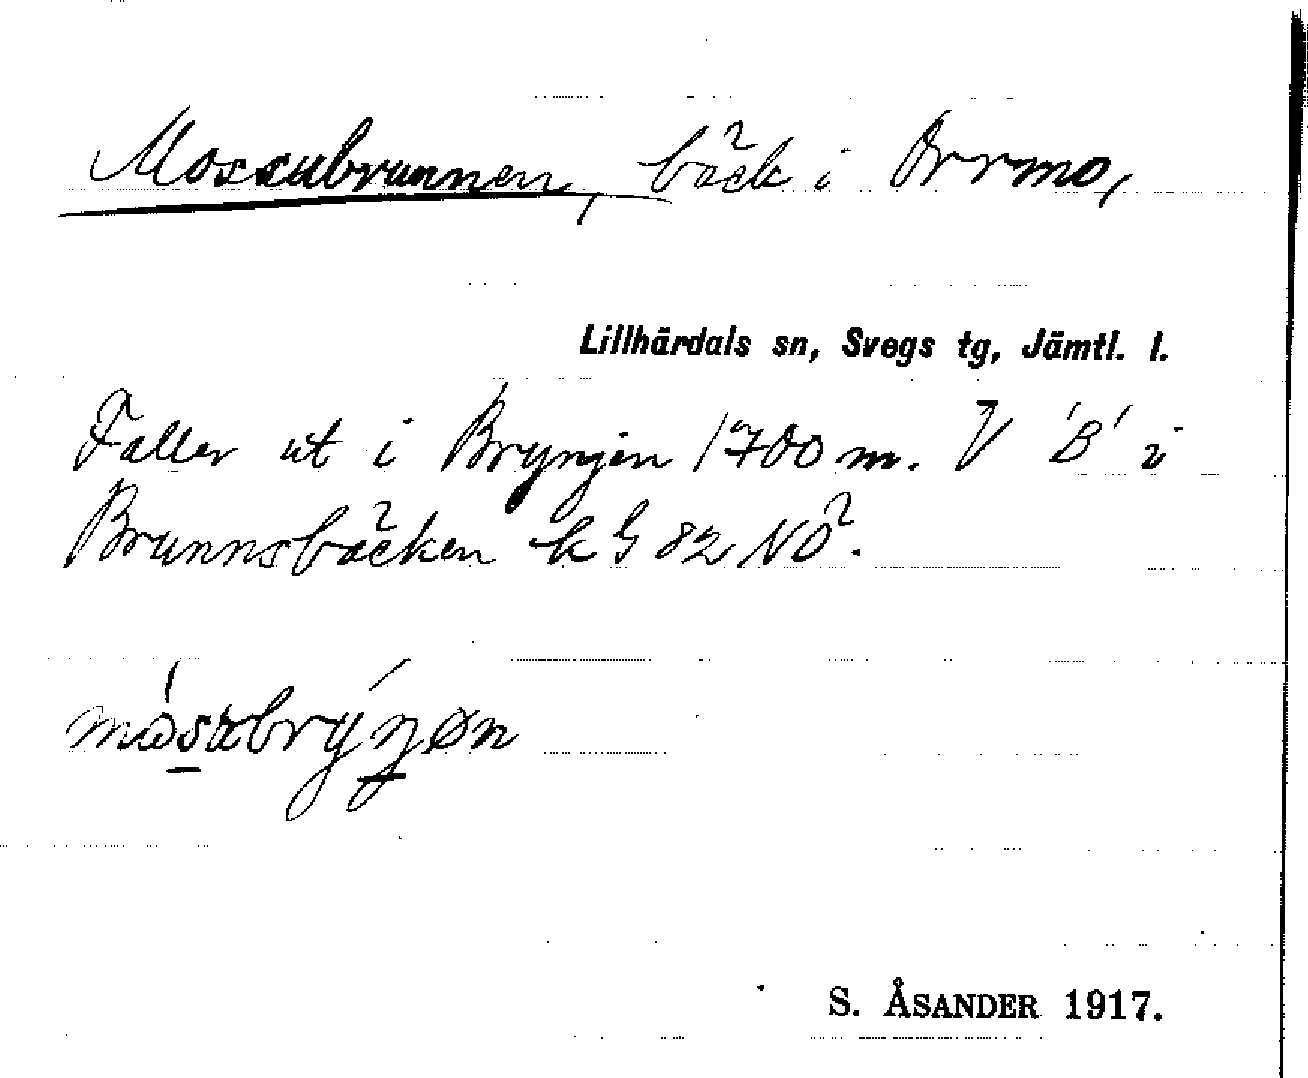 Mossubrunnen, bäck i Orrmo,
Lillhärdals sn, Svegs tg, Jämtl. l.
Faller ut i Bryngen 1700 m. V 'B' i
Brunnsbäcken k G 82 NÖ.
S. ÅSANDER 1917.